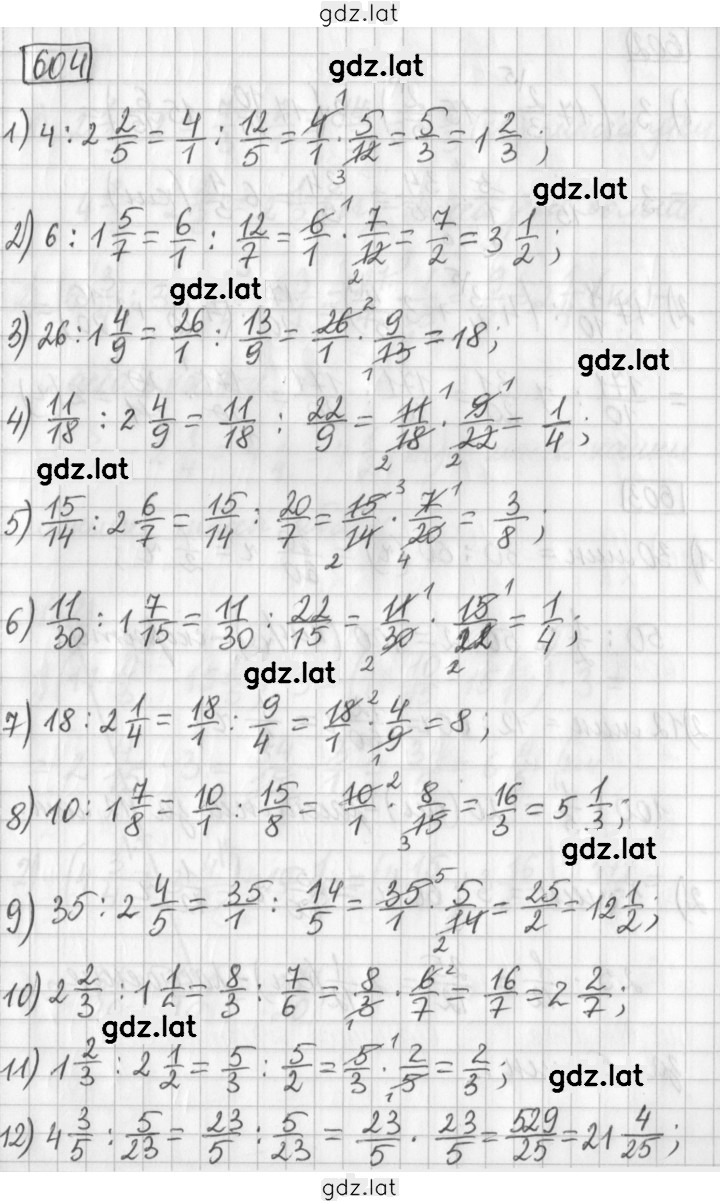 gdz.lat
604
gdz.lat
1) 4 : 2 2/5 = 4/1 : 12/5 = 4/1 1 · 5/12 3 = 5/3 = 1 2/3 ;
gdz.lat
2) 6 : 1 5/7 = 6/1 : 12/7 = 6/1 1 · 7/12 2 = 7/2 = 3 1/2 ;
gdz.lat
3) 26 : 1 4/9 = 26/1 : 13/9 = 26/1 2 · 9/13 1 = 18;
gdz.lat
4) 11/18 : 2 4/9 = 11/18 : 22/9 = 11/18 1 2 · 9/22 1 2 = 1/4 ;
gdz.lat
5) 15/14 : 2 6/7 = 15/14 : 20/7 = 15/14 3 2 · 7/20 1 4 = 3/8 ;
6) 11/30 : 1 7/15 = 11/30 : 22/15 = 11/30 1 2 · 15/22 1 2 = 1/4 ;
gdz.lat
7) 18 : 2 1/4 = 18/1 : 9/4 = 18/1 2 · 4/9 1 = 8 ;
8) 10 : 1 7/8 = 10/1 : 15/8 = 10/1 2 · 8/15 3 = 16/3 = 5 1/3 ;
gdz.lat
9) 35 : 2 4/5 = 35/1 : 14/5 = 35/1 5 · 5/14 2 = 25/2 = 12 1/2 ;
10) 2 2/3 : 1 1/6 = 8/3 : 7/6 = 8/3 1 · 6/7 2 = 16/7 = 2 2/7 ;
gdz.lat
11) 1 2/3 : 2 1/2 = 5/3 : 5/2 = 5/3 1 · 2/5 1 = 2/3 ;
gdz.lat
12) 4 3/5 : 5/23 = 23/5 : 5/23 = 23/5 · 23/5 = 529/25 = 21 4/25 ;
gdz.lat